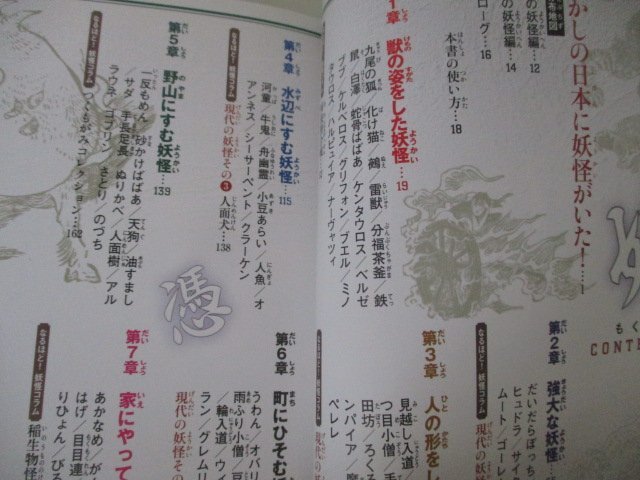 かしの日本に妖怪がいた！…1
妖怪編…12
の妖怪編…14
ローグ…16
本書の使い方…18
1章 獣の姿をした妖怪…19
九尾の狐／化け猫／鵺／雷獣／分福茶釜／鉄
鼠／白澤／蛇骨ばばあ／ケンタウロス／ベルゼ
ブブ／ケルベロス／グリフォン／ブエル／ミノ
タウロス／ハルピュイア／ナーヴァッィ
もく
CONTE
第2章 強大な妖怪
だいだらぼっち
ヒュドラ／サイタ
ムート／ゴーレ
なるほど！妖怪コラム
現代の妖怪
第3章 人の形をし
見越し入道
つ目小僧／手
田坊／ろくろ
ンパイア／魔
ペレレ
第4章 水辺にすむ妖怪…115
河童／牛鬼／舟幽霊／小豆あらい／人魚／オ
アンネス／シーサーペント／クラーケン
なるほど！妖怪コラム
現代の妖怪その❸ 人面犬…138
第5章 野山にすむ妖怪…139
一反もめん／砂かけばばあ／天狗／油すまし
／サダ／手長足長／ぬりかべ／人面樹／アル
ラウネ／ゴブリン／さとり／のづち
なるほど！妖怪コラム
つくもがみコレクション…162
憑
第6章 町にひそむ妖
うわん／オバリ
雨ふり小僧／豆
／輪入道／ウィ
ラン／グレムリ
なるほど！妖怪コラム
現代の妖怪そ
第7章 家にやって
あかなめ／がん
はげ／目目連
りひょん／びろ
なるほど！妖怪コラム
稲生物怪